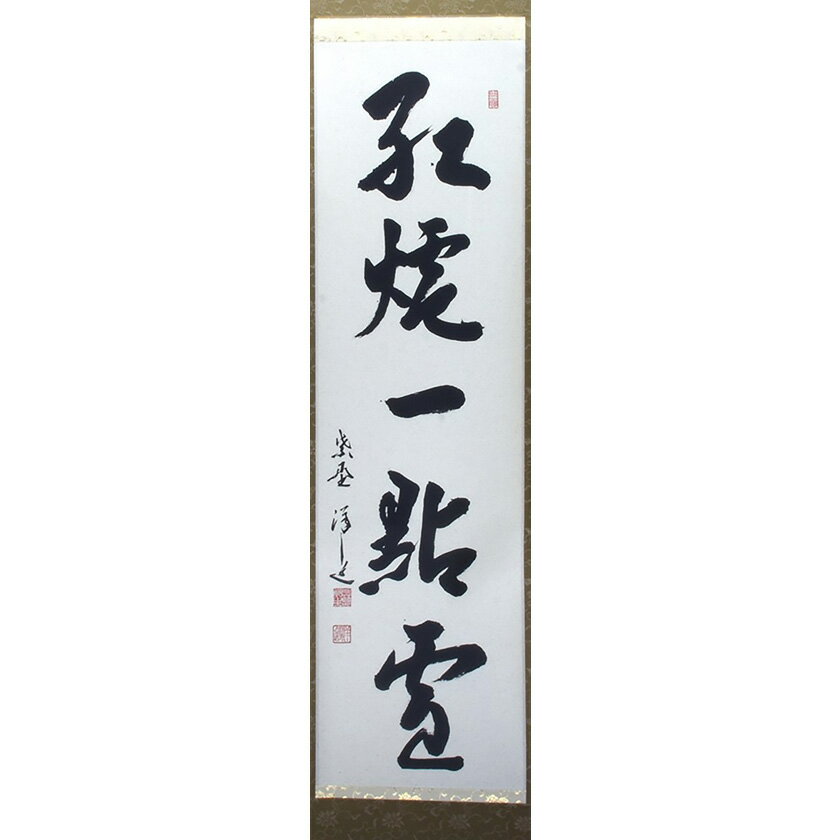 紅爐一點雪
紫野